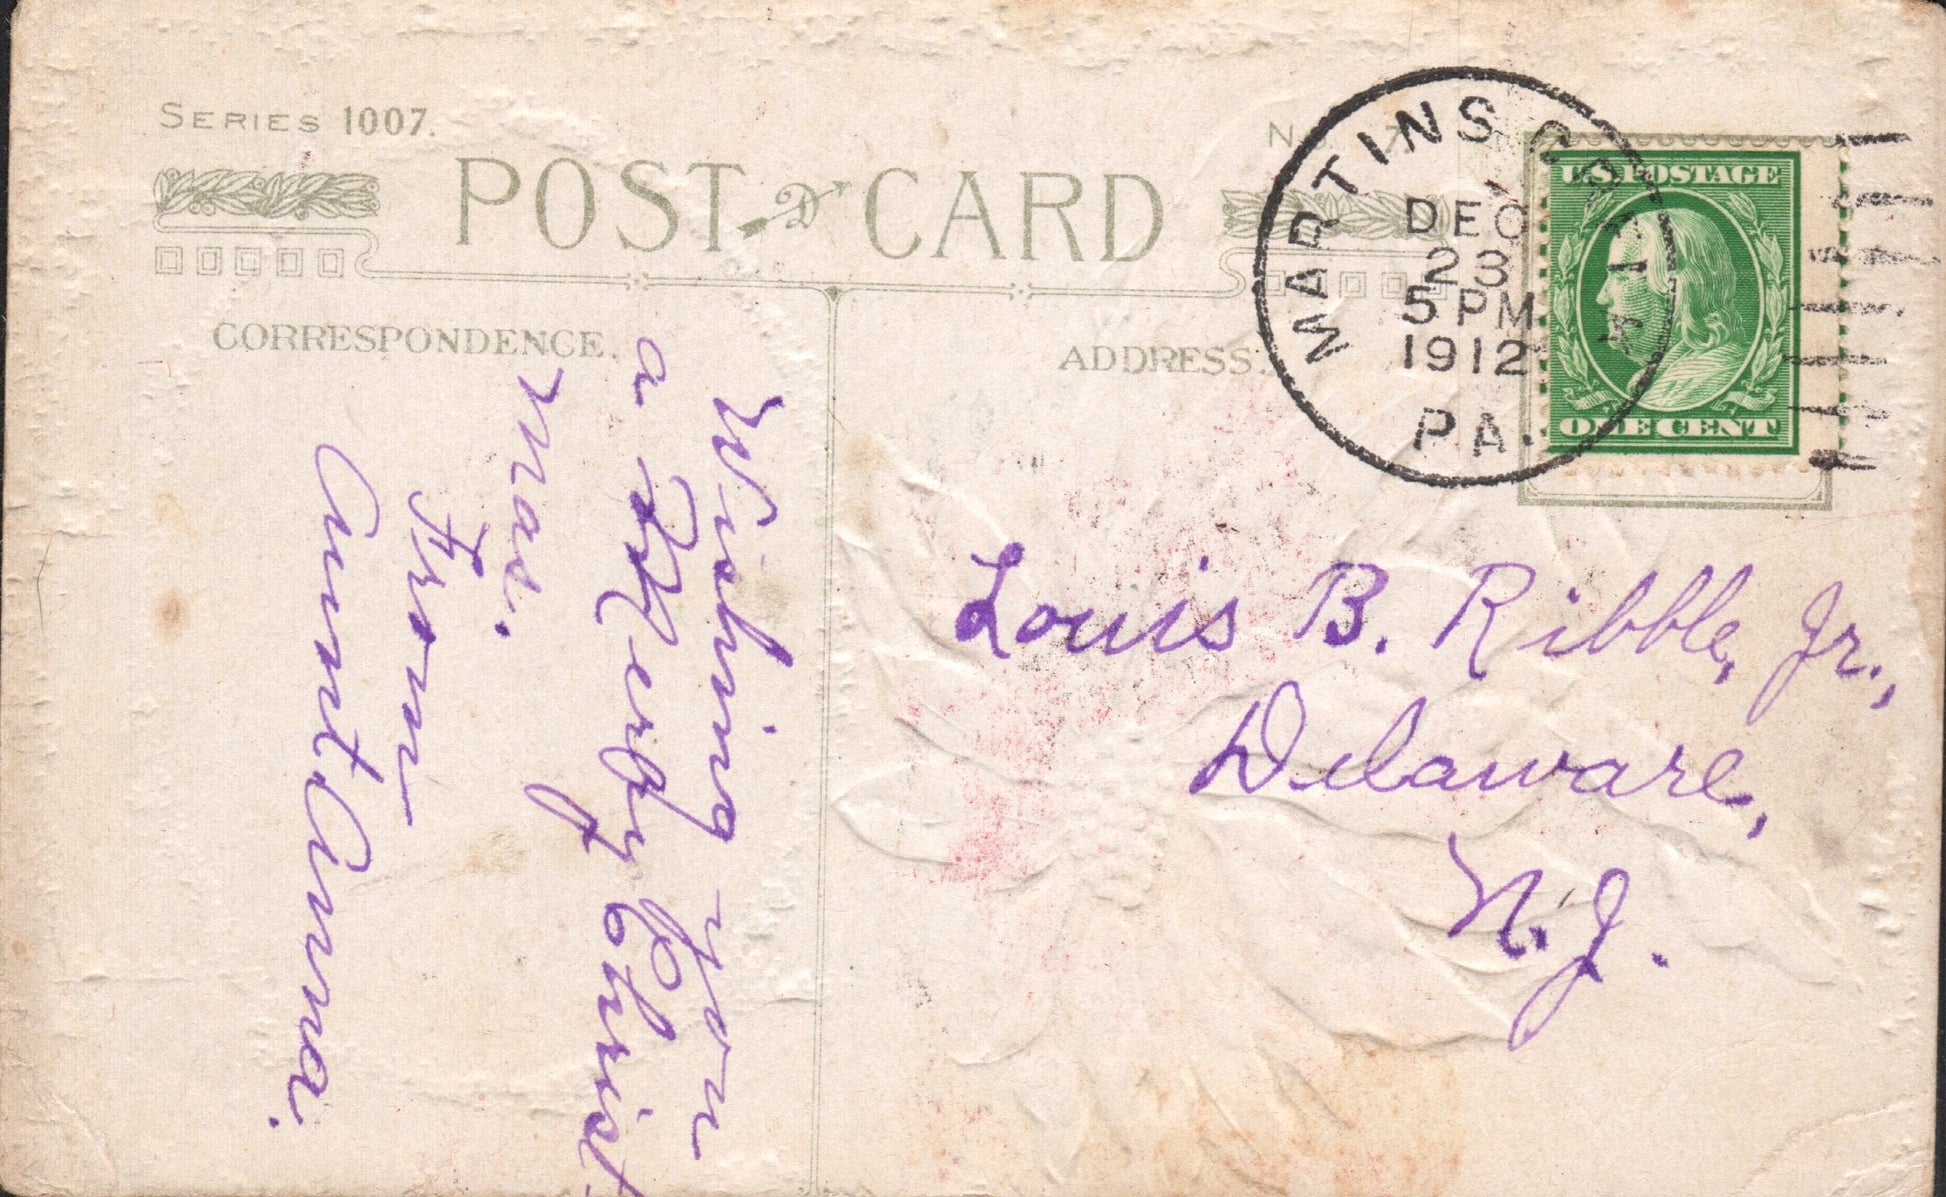 SERIES 1007.
POST CARD
CORRESPONDENCE.
ADDRESS.
MARTINS CREEK
DEC
23
5 PM
1912
PA.
U.S. POSTAGE
ONE CENT
Wishing you
a Merry Christ
mas.
From
Aunt Anna.
Louis B. Ribble, Jr.,
Delaware,
N.J.